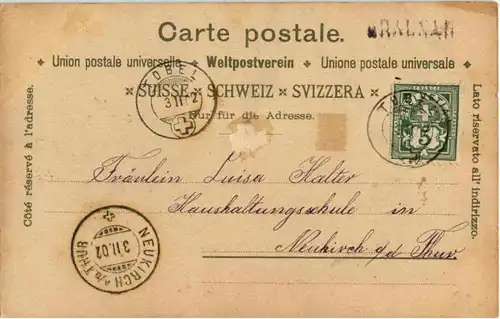 Carte postale.
Union postale universelle Weltpostverein Unione postale universale
SUISSE SCHWEIZ SVIZZERA
Nur für die Adresse.
Côté réservé à l'adresse.
Lato riservato all' indirizzo.
TOBEL
3 II 02
TOBEL
5
Fräulein Luisa Halter
Haushaltungsschule in
Neukirch a/d Thur.
NEUKIRCH a/d THUR
3 II 02